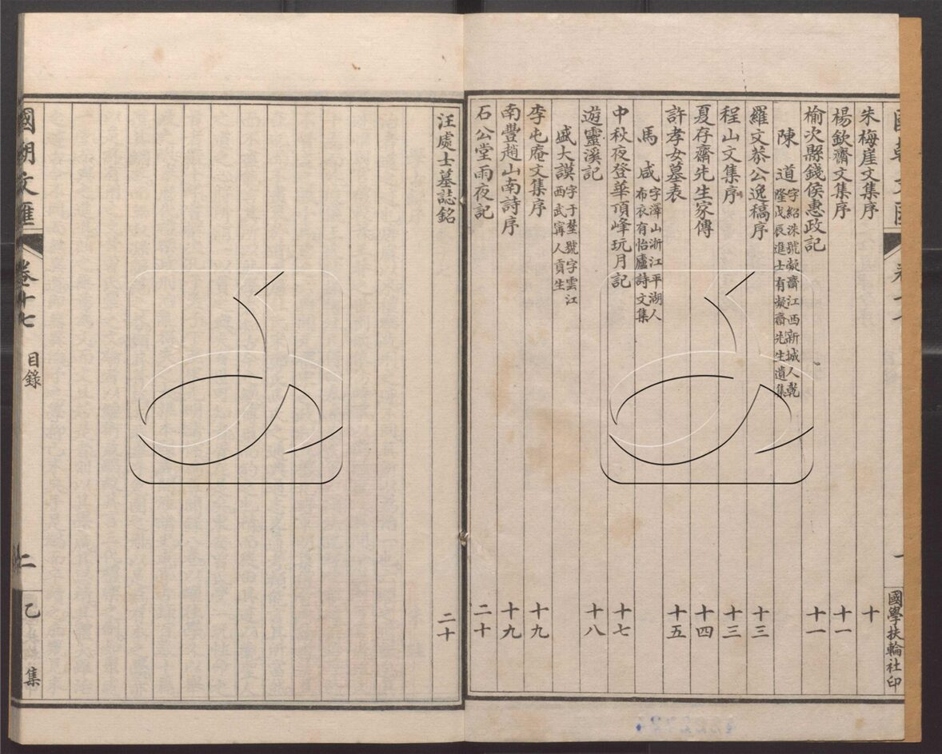 朱梅崖文集序 十
楊欽齋文集序 十一
榆次縣錢侯惠政記 十一
陳道 字紹洙號凝齋江西新城人乾
隆戊辰進士有凝齋先生遺集
羅文恭公逸稿序 十三
程山文集序 十三
夏存齋先生家傳 十四
許孝女墓表 十五
馬咸 字澤山浙江平湖人
布衣有怡廬詩文集
中秋夜登華頂峰玩月記 十七
遊靈溪記 十八
盛大謨 字于埜號字雲江
西武寧人貢生
李屯庵文集序 十九
南豐趙山南詩序 十九
石公堂雨夜記 二十
汪處士墓誌銘 二十
國朝文匯 卷十七 目錄 二 乙集
國學扶輪社印